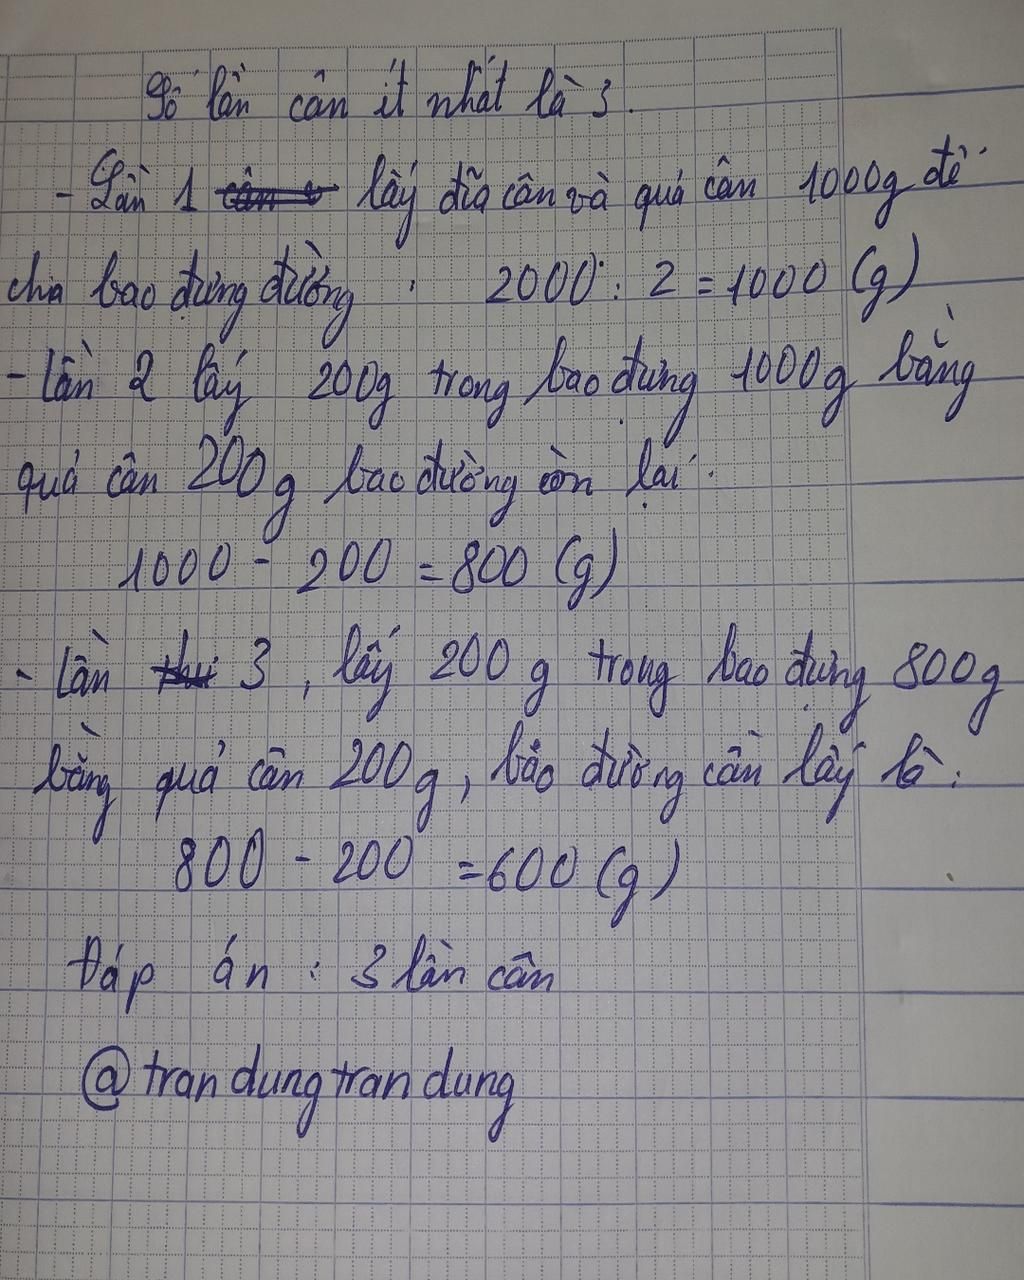 Số lần cân ít nhất là 3.
- Lần 1 lấy đĩa cân và quả cân 1000g để
chia bao đựng đường : 2000 : 2 = 1000 (g)
- lần 2 lấy 200g trong bao đựng 1000g bằng
quả cân 200g bao đường còn lại :
1000 - 200 = 800 (g)
- lần 3, lấy 200g trong bao đựng 800g
bằng quả cân 200g, bao đường cần lấy là :
800 - 200 = 600 (g)
Đáp án : 3 lần cân
@trandungtrandung